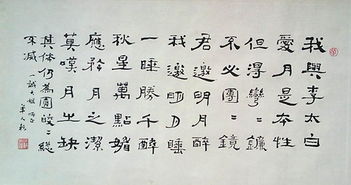 我與李太白
愛月是本性
但得彎二鐮
不必團二鏡
君邀明月醉
我邀明月睡
一睡勝千醉
秋星萬點
應於月之潔
莫嘆月生缺
其体仍為圓皎二總
不减